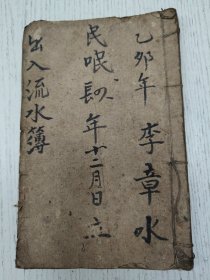 乙卯年 李章水
民
年十二月日立
出入流水簿